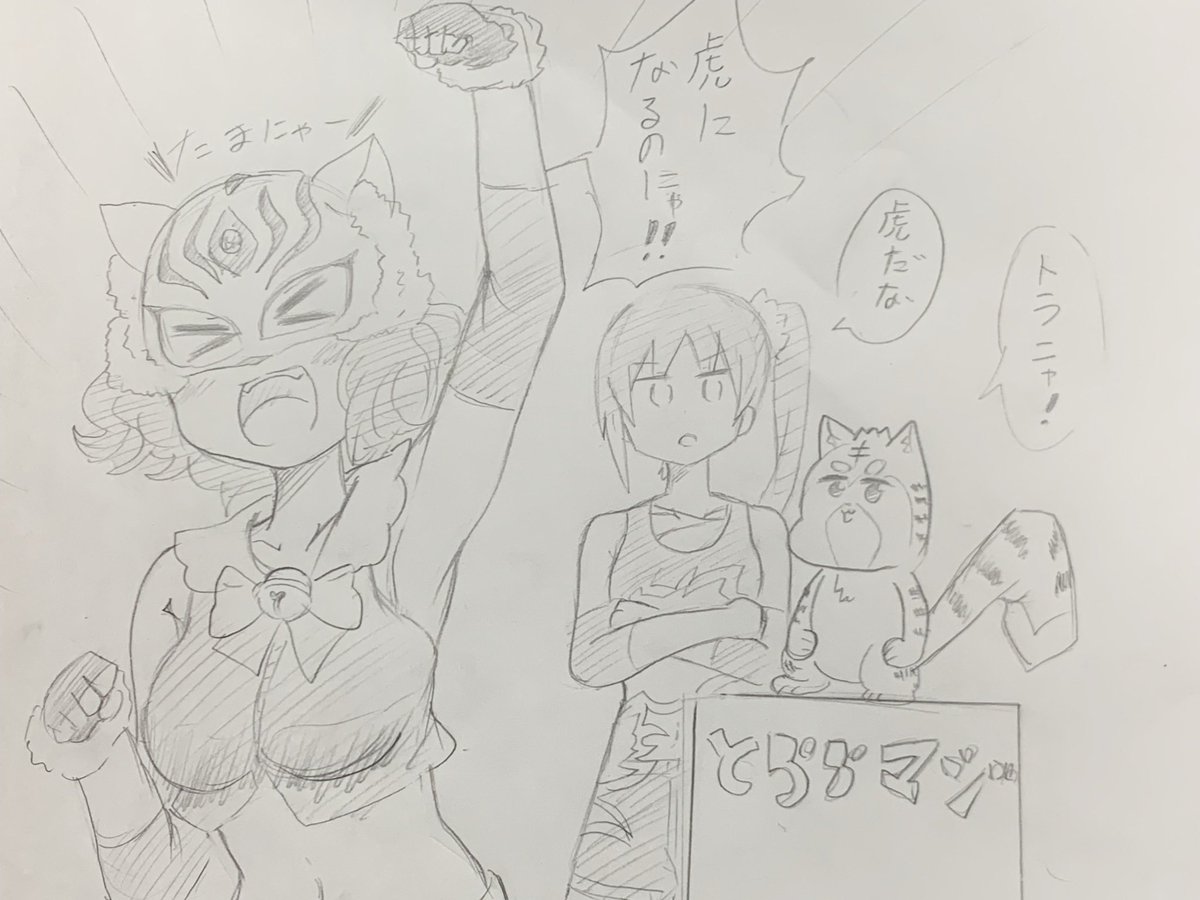 たまにゃー
虎に
なるのにゃ!!
虎だな
トラニャ!
とらドラマジ